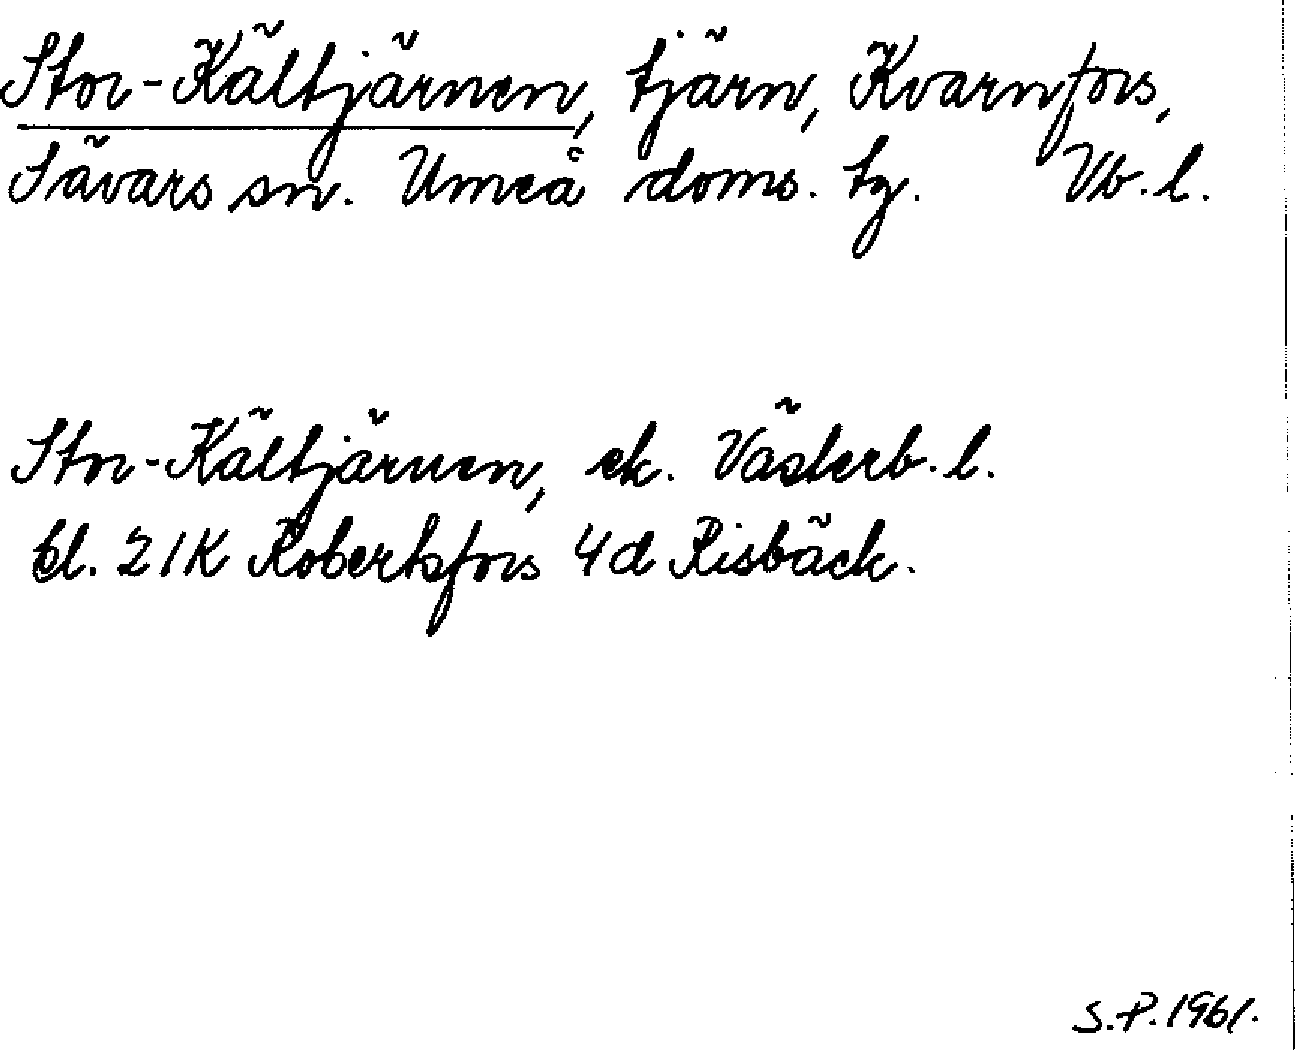 Stor-Kältjärnen, tjärn, Kvarnfors,
Sävars sn. Umeå doms. tg. Vb. l.
Stor-Kältjärnen, ek. Västerb. l.
bl. 21K Robertsfors 4d Risbäck.
S.P. 1961.